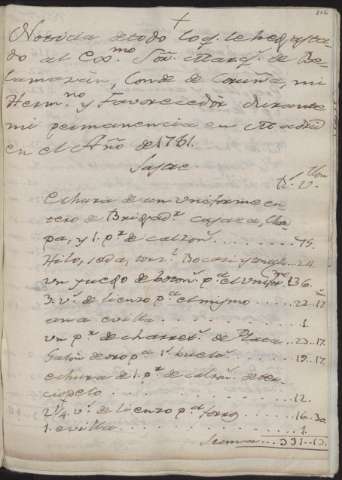 +
Noticia de todo lo q.e he gasta
do al Exc.mo Sor. Marq.s de Be
lamazán, Conde de Coruña, mi
Herm.no y Favorecedor durante
mi permanencia en Madrid
en el Año de 1761.
Sastre
Echura de un uniforme en
tero de Brigad.r casaca, chu
pa, y 1. p.r de calzon.s ........ 75.
Hilo, seda, 24
un juego de boton.s p.a el unifor.me 136.
3. v.s de lienzo p.a el mismo .... 22.17
una evilla ........ 1.
un p.r de charret.s de Plata .. 23.17
Galon de oro p.a 19.17
echura de 1. p.r de calzon.s de ter
ciopelo ........ 12.
2 1/4 v.s de lienzo p.a forro ..... 16.30
1. evilla ........ 1.
Suma ... 331.13.